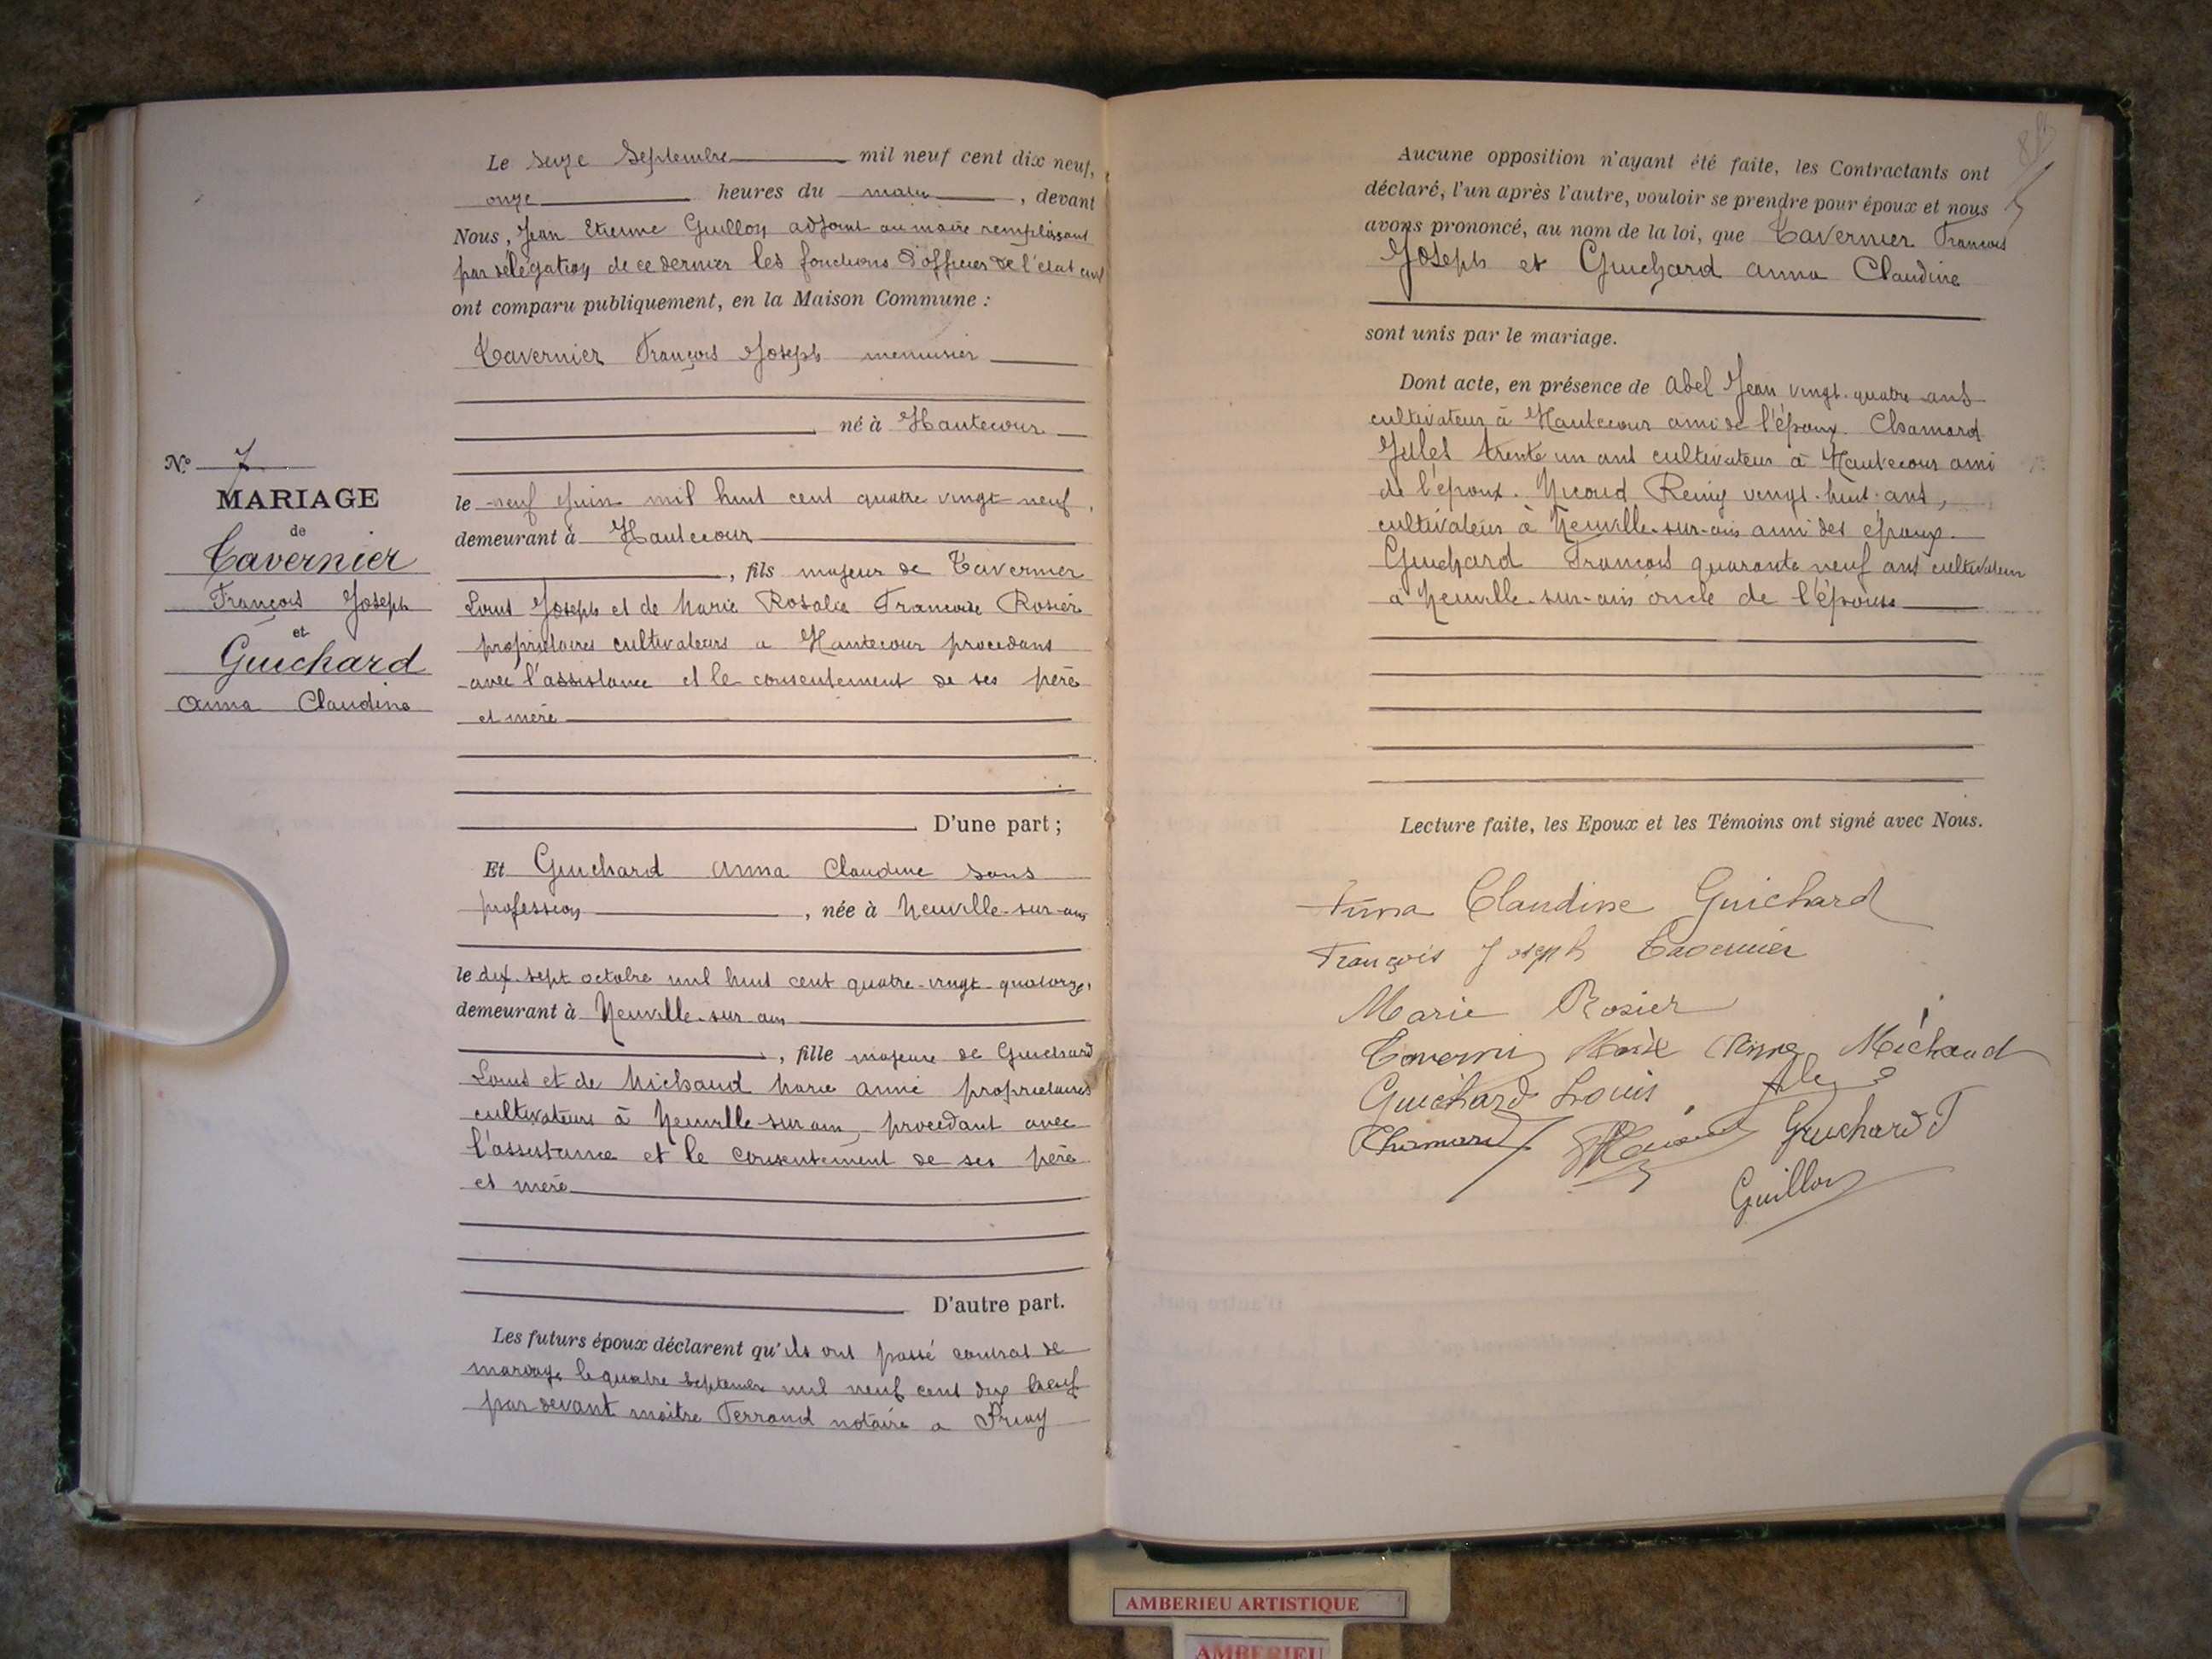 Le seize Septembre mil neuf cent dix neuf,
onze heures du matin, devant
Nous, Jean Etienne Guillon adjoint au maire remplissant
par délégation de ce dernier les fonctions d'officier de l'état civil
ont comparu publiquement, en la Maison Commune :
Tavernier François Joseph menuisier
né à Hautecour
N° 7
MARIAGE
de
Tavernier
François Joseph
et
Guichard
Anna Claudine
le neuf juin mil huit cent quatre vingt neuf,
demeurant à Hautecour
, fils majeur de Tavernier
Louis Joseph et de Marie Rosalie Francoise Rosier
propriétaires cultivateurs a Hautecour procedant
avec l'assistance et le consentement de ses père
et mère
D'une part ;
Et Guichard Anna Claudine sans
profession, née à Neuville-sur-ain
le dix sept octobre mil huit cent quatre-vingt-quatorze,
demeurant à Neuville-sur ain
, fille majeure de Guichard
Louis et de Michaud Marie Anne proprietaires
cultivateurs à Neuville-sur ain, procedant avec
l'assistance et le consentement de ses père
et mère
D'autre part.
Les futurs époux déclarent qu'ils ont passé contrat de
mariage le quatre septembre mil neuf cent dix neuf
par devant maitre Ferrand notaire a Priay
Aucune opposition n'ayant été faite, les Contractants ont
déclaré, l'un après l'autre, vouloir se prendre pour époux et nous
avons prononcé, au nom de la loi, que Tavernier Francois
Joseph et Guichard Anna Claudine
sont unis par le mariage.
Dont acte, en présence de Abel Jean vingt-quatre ans
cultivateur à Hautecour ami de l'époux. Chamard
Jules trente un ans cultivateur à Hautecour ami
de l'époux. Nicoud Remy vingt-huit-ans,
cultivateur à Neuville-sur-ain ami des époux.
Guichard Francois quarante neuf ans cultivateur
a Neuville-sur-ain oncle de l'épouse
Lecture faite, les Epoux et les Témoins ont signé avec Nous.
Anna Claudine Guichard
François Joseph Tavernier
Marie Rosier
Michaud
Guichard Louis
Chamard Guichard F
Guillon
AMBERIEU ARTISTIQUE
AMBERIEU